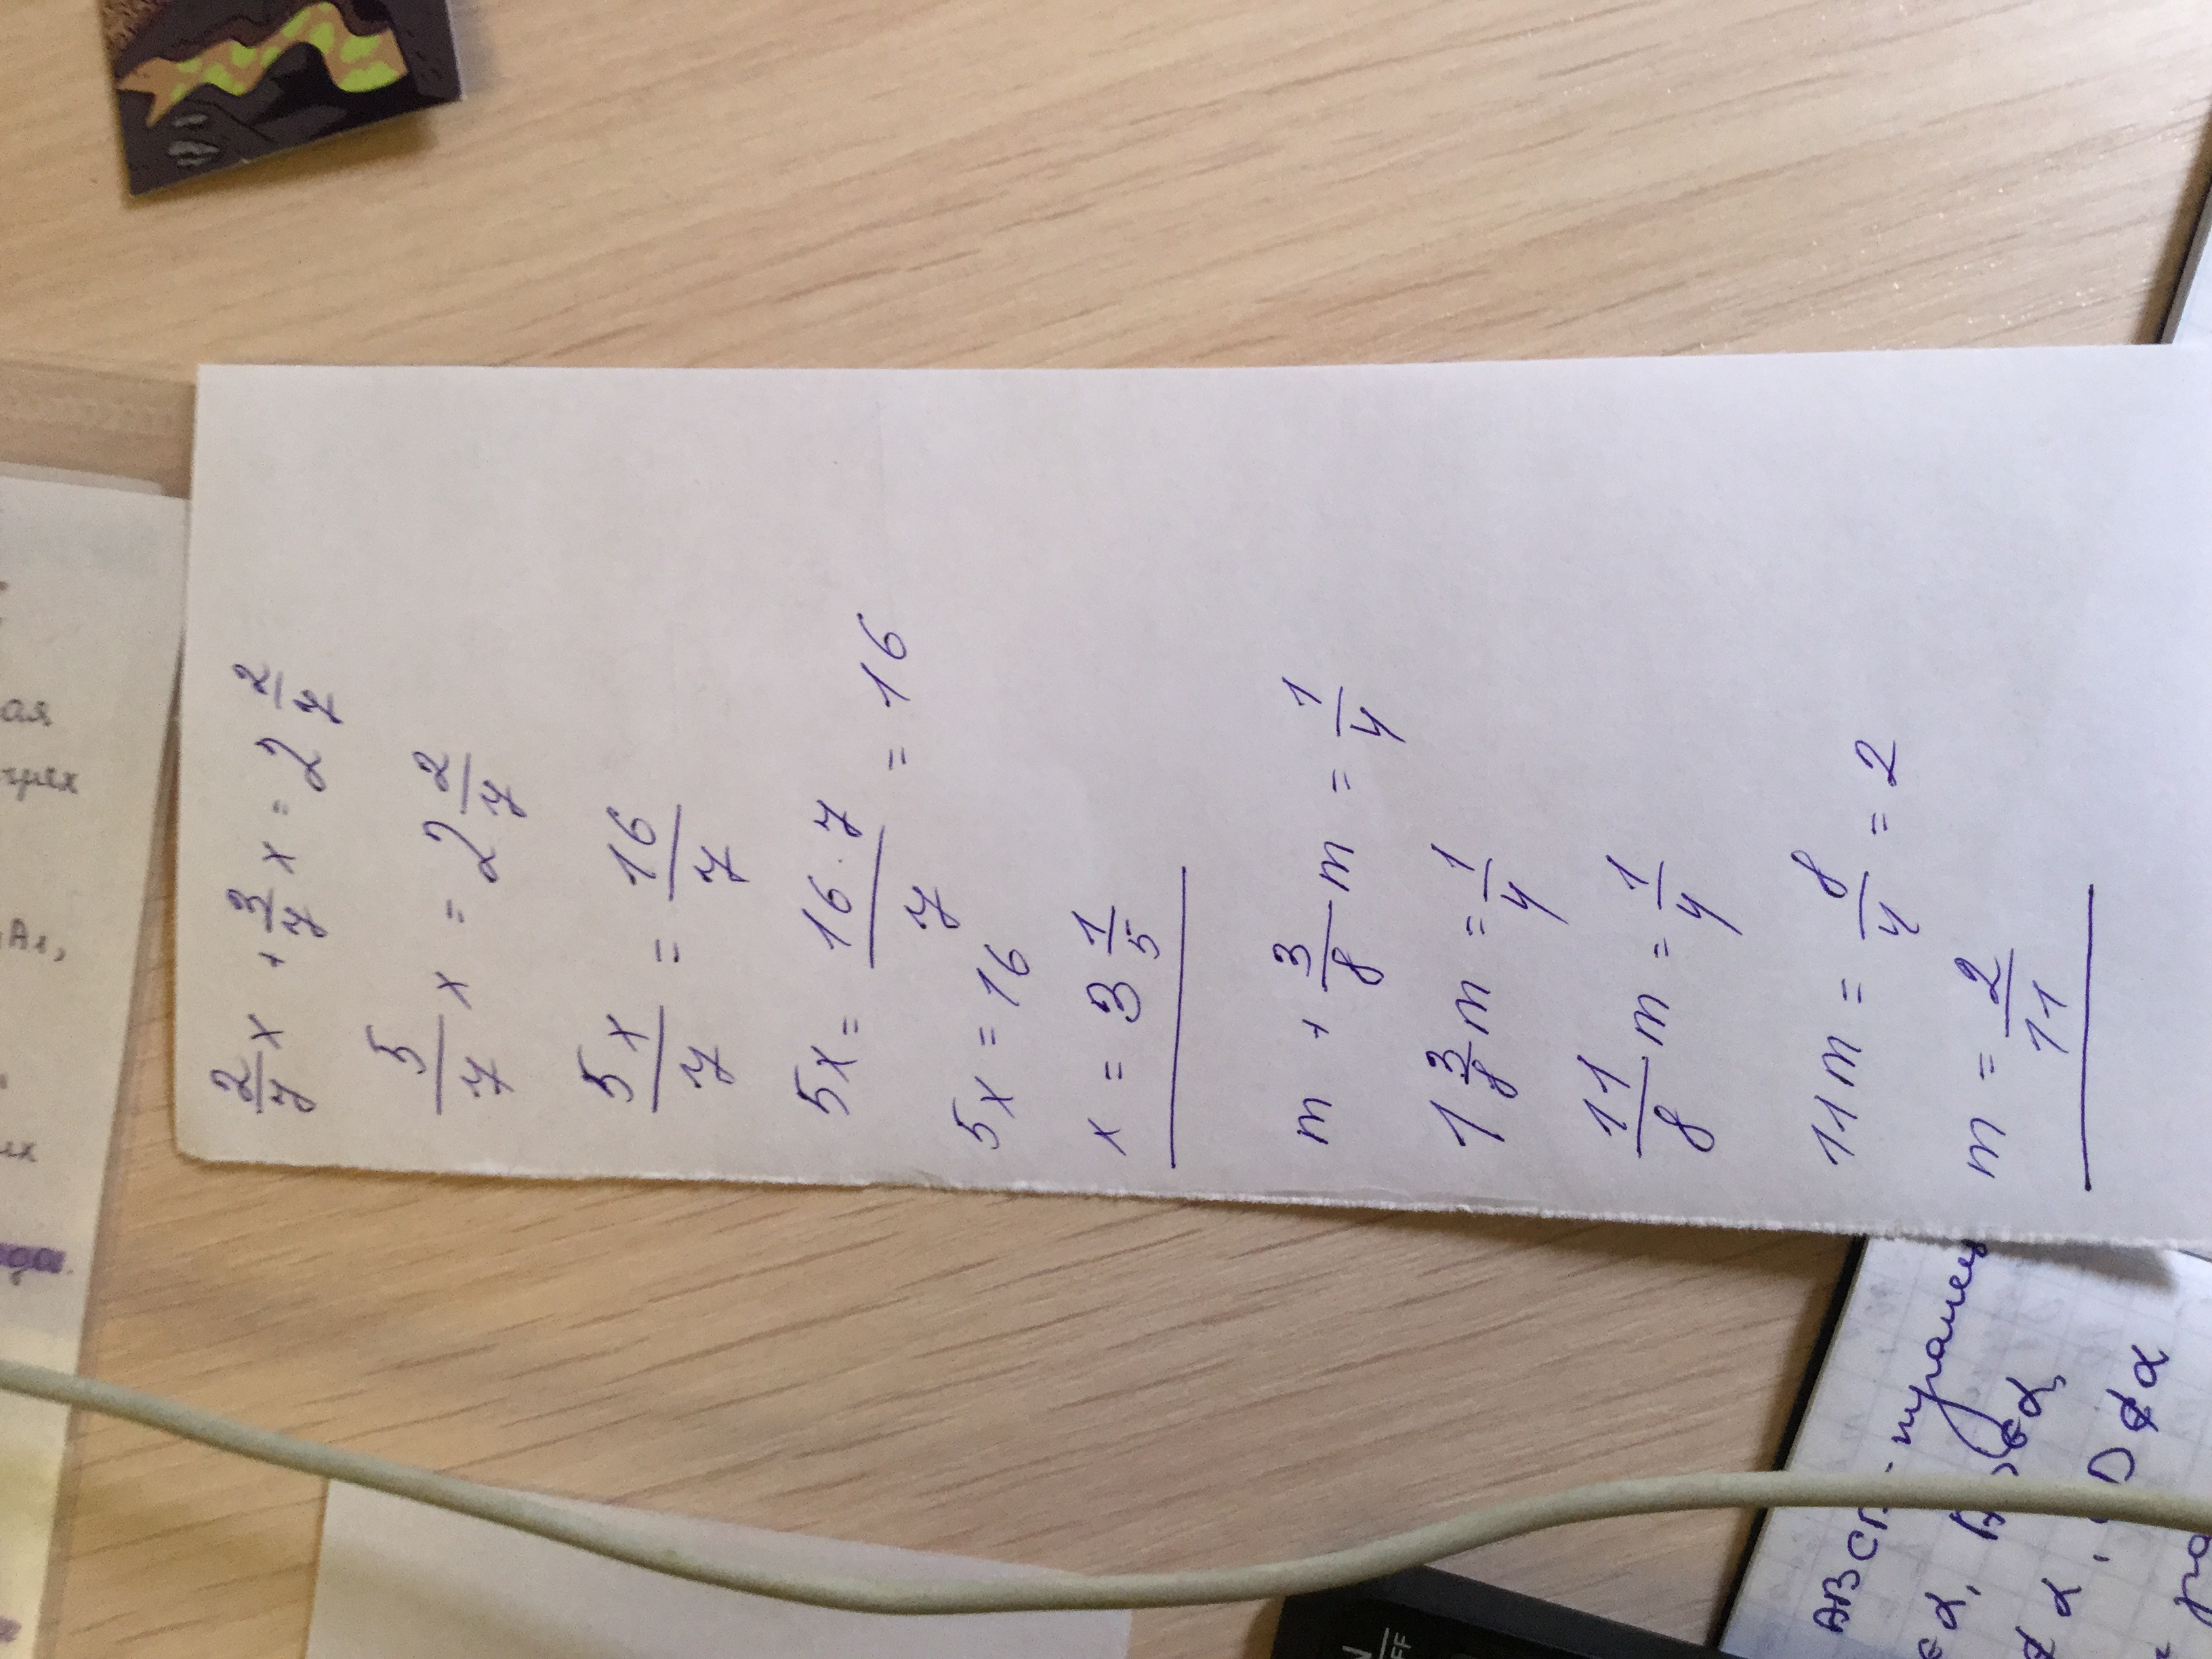 2/7 x + 3/7 x = 2 2/7
5/7 x = 2 2/7
5x/7 = 16/7
5x = 16·7/7 = 16
5x = 16
x = 3 1/5
m + 3/8 m = 1/4
1 3/8 m = 1/4
11/8 m = 1/4
11m = 8/4 = 2
m = 2/11
ая
А1,